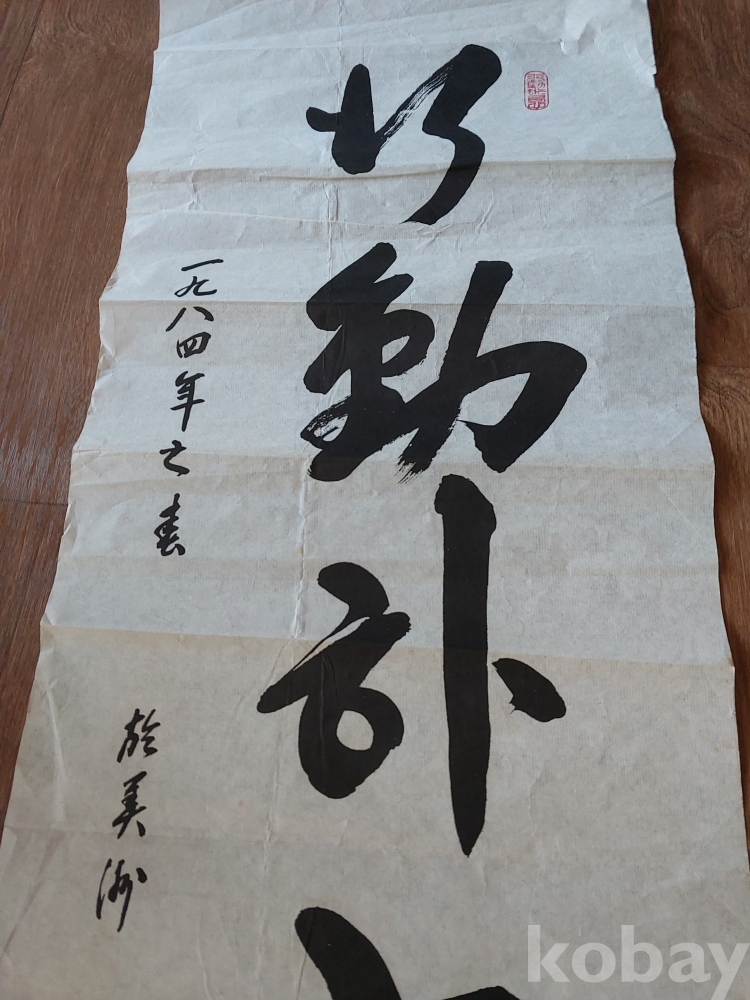 行動
一九八四年之春
於美洲
kobay